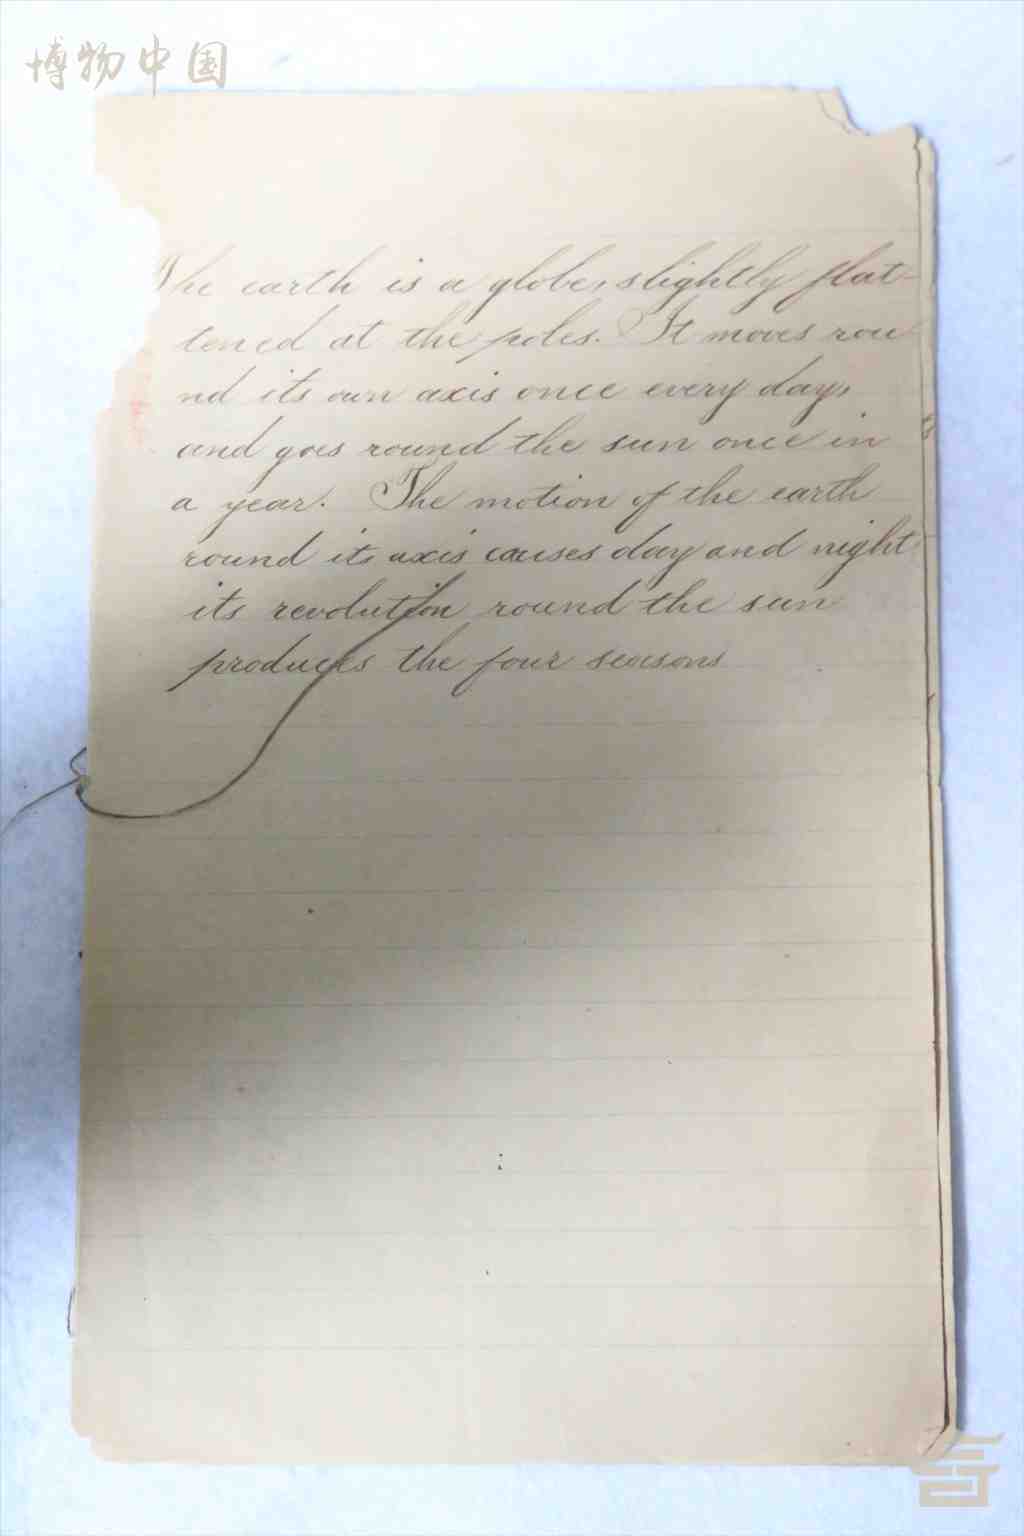 博物中国
The earth is a globe, slightly flat-
tened at the poles. It moves rou
nd its own axis once every day,
and goes round the sun once in
a year. The motion of the earth
round its axis causes day and night
its revolution round the sun
produces the four seasons